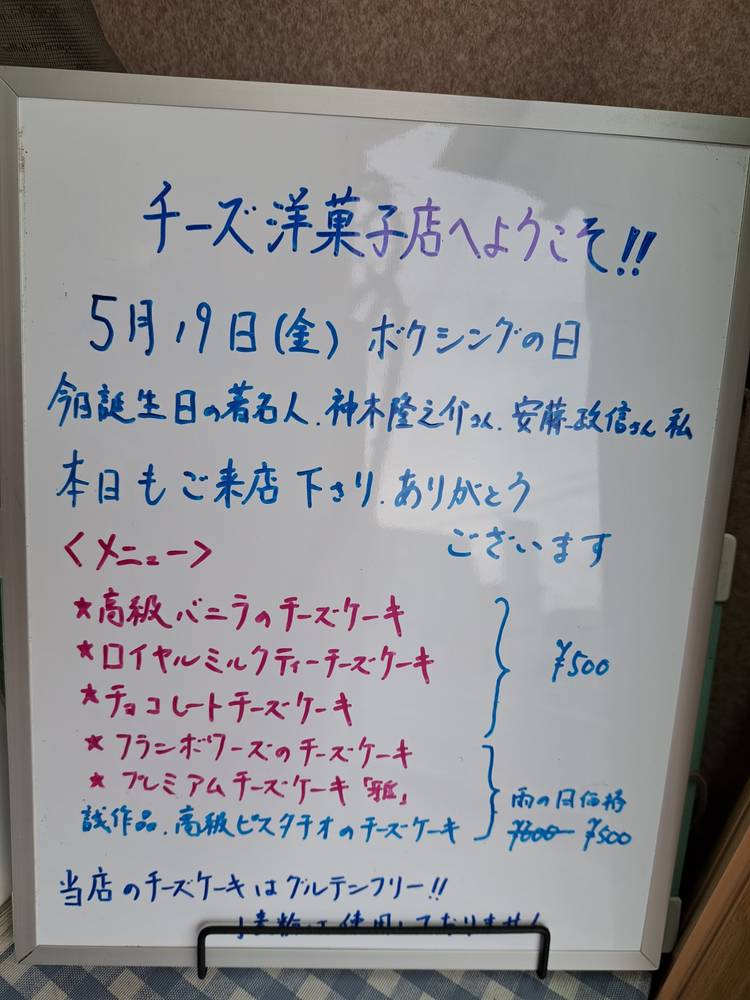 チーズ洋菓子店へようこそ!!
5月19日(金) ボクシングの日
今日誕生日の著名人.神木隆之介さん.安藤政信さん 私
本日もご来店下さり.ありがとう
ございます
<メニュー>
★高級バニラのチーズケーキ
★ロイヤルミルクティーチーズケーキ
★チョコレートチーズケーキ
¥500
★フランボワーズのチーズケーキ
★プレミアムチーズケーキ「雅」
試作品.高級ピスタチオのチーズケーキ
雨の日価格
¥600 ¥500
当店のチーズケーキはグルテンフリー!!
使用しておりません